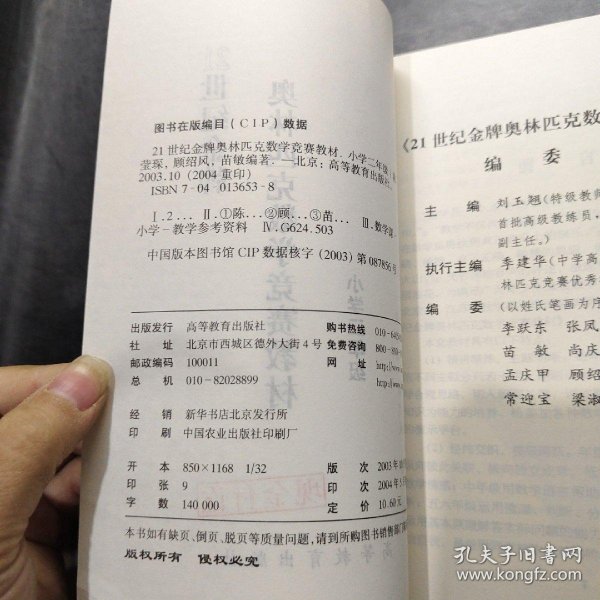 图书在版编目(CIP)数据
21世纪金牌奥林匹克数学竞赛教材.小学二年级
莹琛,顾绍风,苗敏编著.—北京:高等教育出版社,
2003.10(2004重印)
ISBN 7-04-013653-8
Ⅰ.2… Ⅱ.①陈…②顾…③苗… Ⅲ.数学课
小学-教学参考资料 Ⅳ.G624.503
中国版本图书馆CIP数据核字(2003)第087856号
出版发行 高等教育出版社
社 址 北京市西城区德外大街4号
邮政编码 100011
总 机 010-82028899
购书热线 010-64
免费咨询 800-810
网 址 http://www
http://www
经 销 新华书店北京发行所
印 刷 中国农业出版社印刷厂
开 本 850×1168 1/32
印 张 9
字 数 140 000
版 次 2003年10
印 次 2004年
定 价 10.60元
本书如有缺页、倒页、脱页等质量问题,请到所购图书销售部门
版权所有 侵权必究
《21世纪金牌奥林匹克数
编 委
主 编 刘玉翘(特级教师
首批高级教练员,
副主任。)
执行主编 李建华(中学高
林匹克竞赛优秀
编 委 (以姓氏笔画为序
李跃东 张凤
苗 敏 尚庆
孟庆甲 顾绍
常迎宝 梁淑
孔夫子旧书网
www.kongfz.com